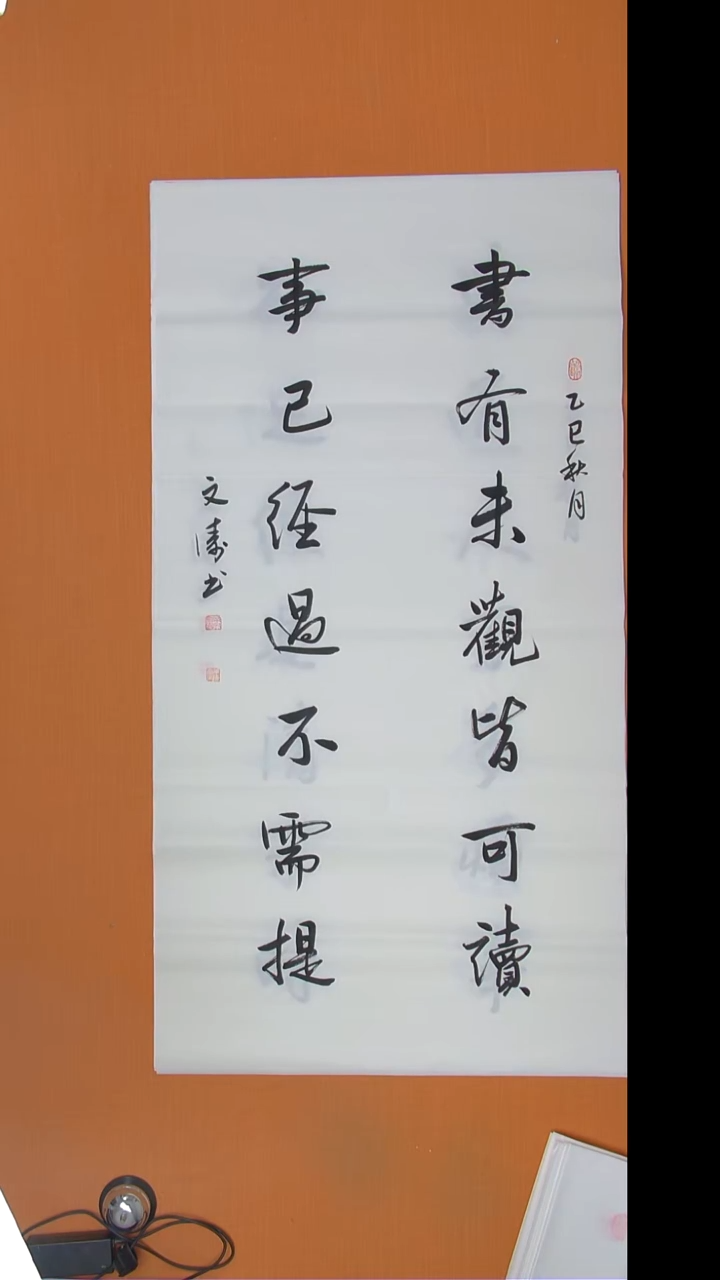 乙巳秋月
書有未觀皆可讀
事已經過不需提
文濤书